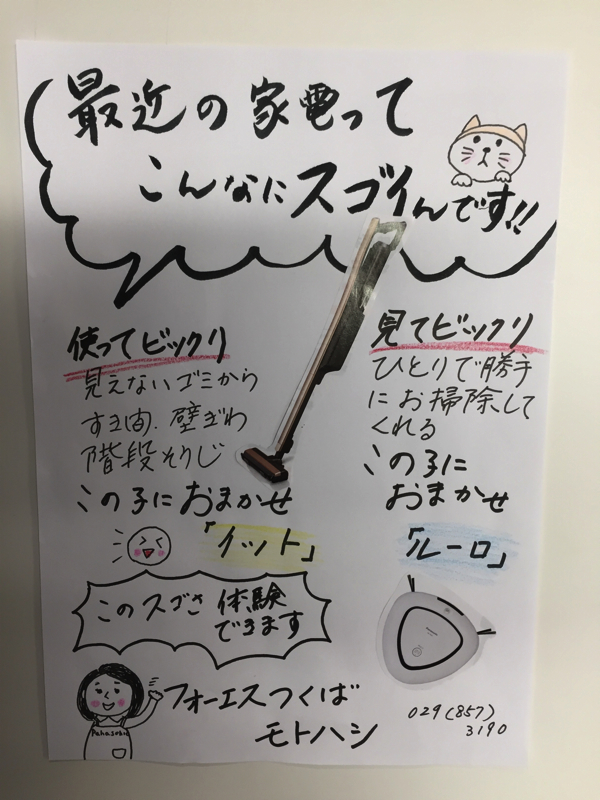 最近の家電って
こんなにスゴイんです!!
使ってビックリ
見えないゴミから
すき間、壁ぎわ
階段そうじ
この子におまかせ
「イット」
見てビックリ
ひとりで勝手
にお掃除して
くれる
この子に
おまかせ
「ルーロ」
このスゴさ 体験
できます
フォーエスつくば
モトハシ
Panasonic
029(857)
3190